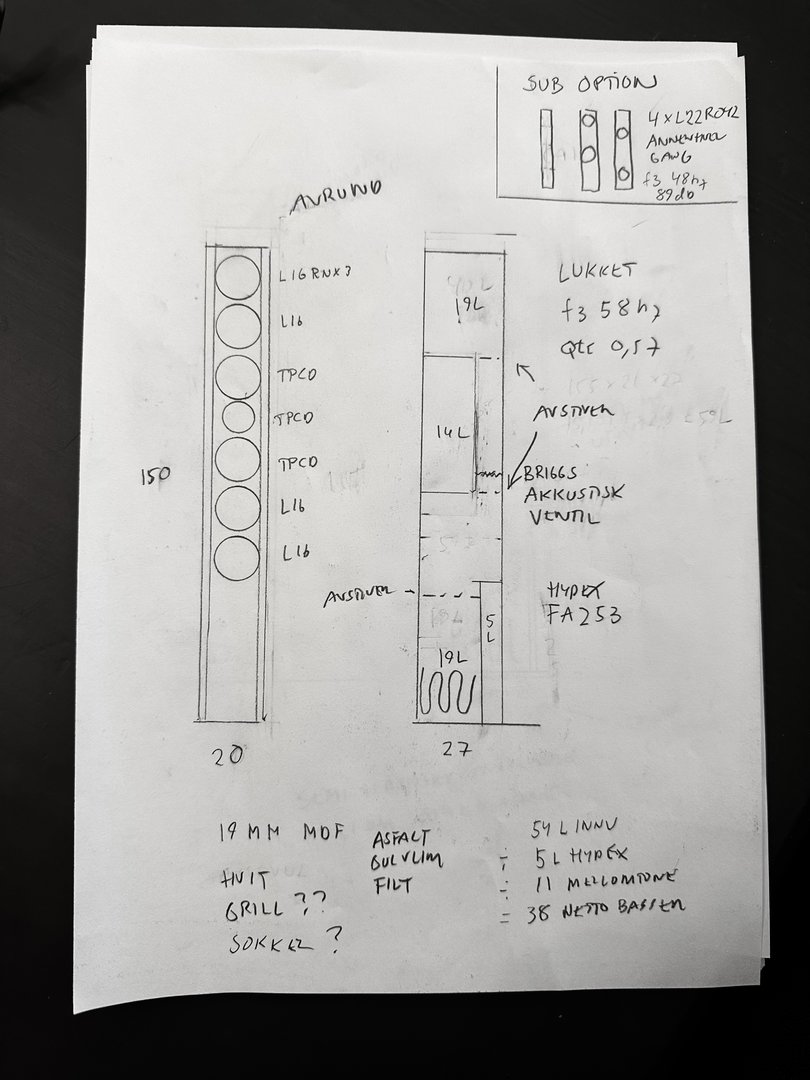 SUB OPTION
4 x L22RO42
ANNENHVER
GANG
f3 48hz
89db
AVRUND
L16RNX3
L16
TPCD
TPCD
TPCD
L16
L16
150
20
19L
14L
AVSTIVER
5
L
19L
27
LUKKET
f3 58hz
Qtc 0,57
AVSTIVER
BRIGGS
AKKUSTISK
VENTIL
HYPEX
FA253
19 MM MDF
HVIT
GRILL ??
SOKKEL ?
ASFALT
GULVLIM
FILT
54 L INNV
- 5 L HYPEX
- 11 MELLOMTONE
= 38 NETTO BASSER